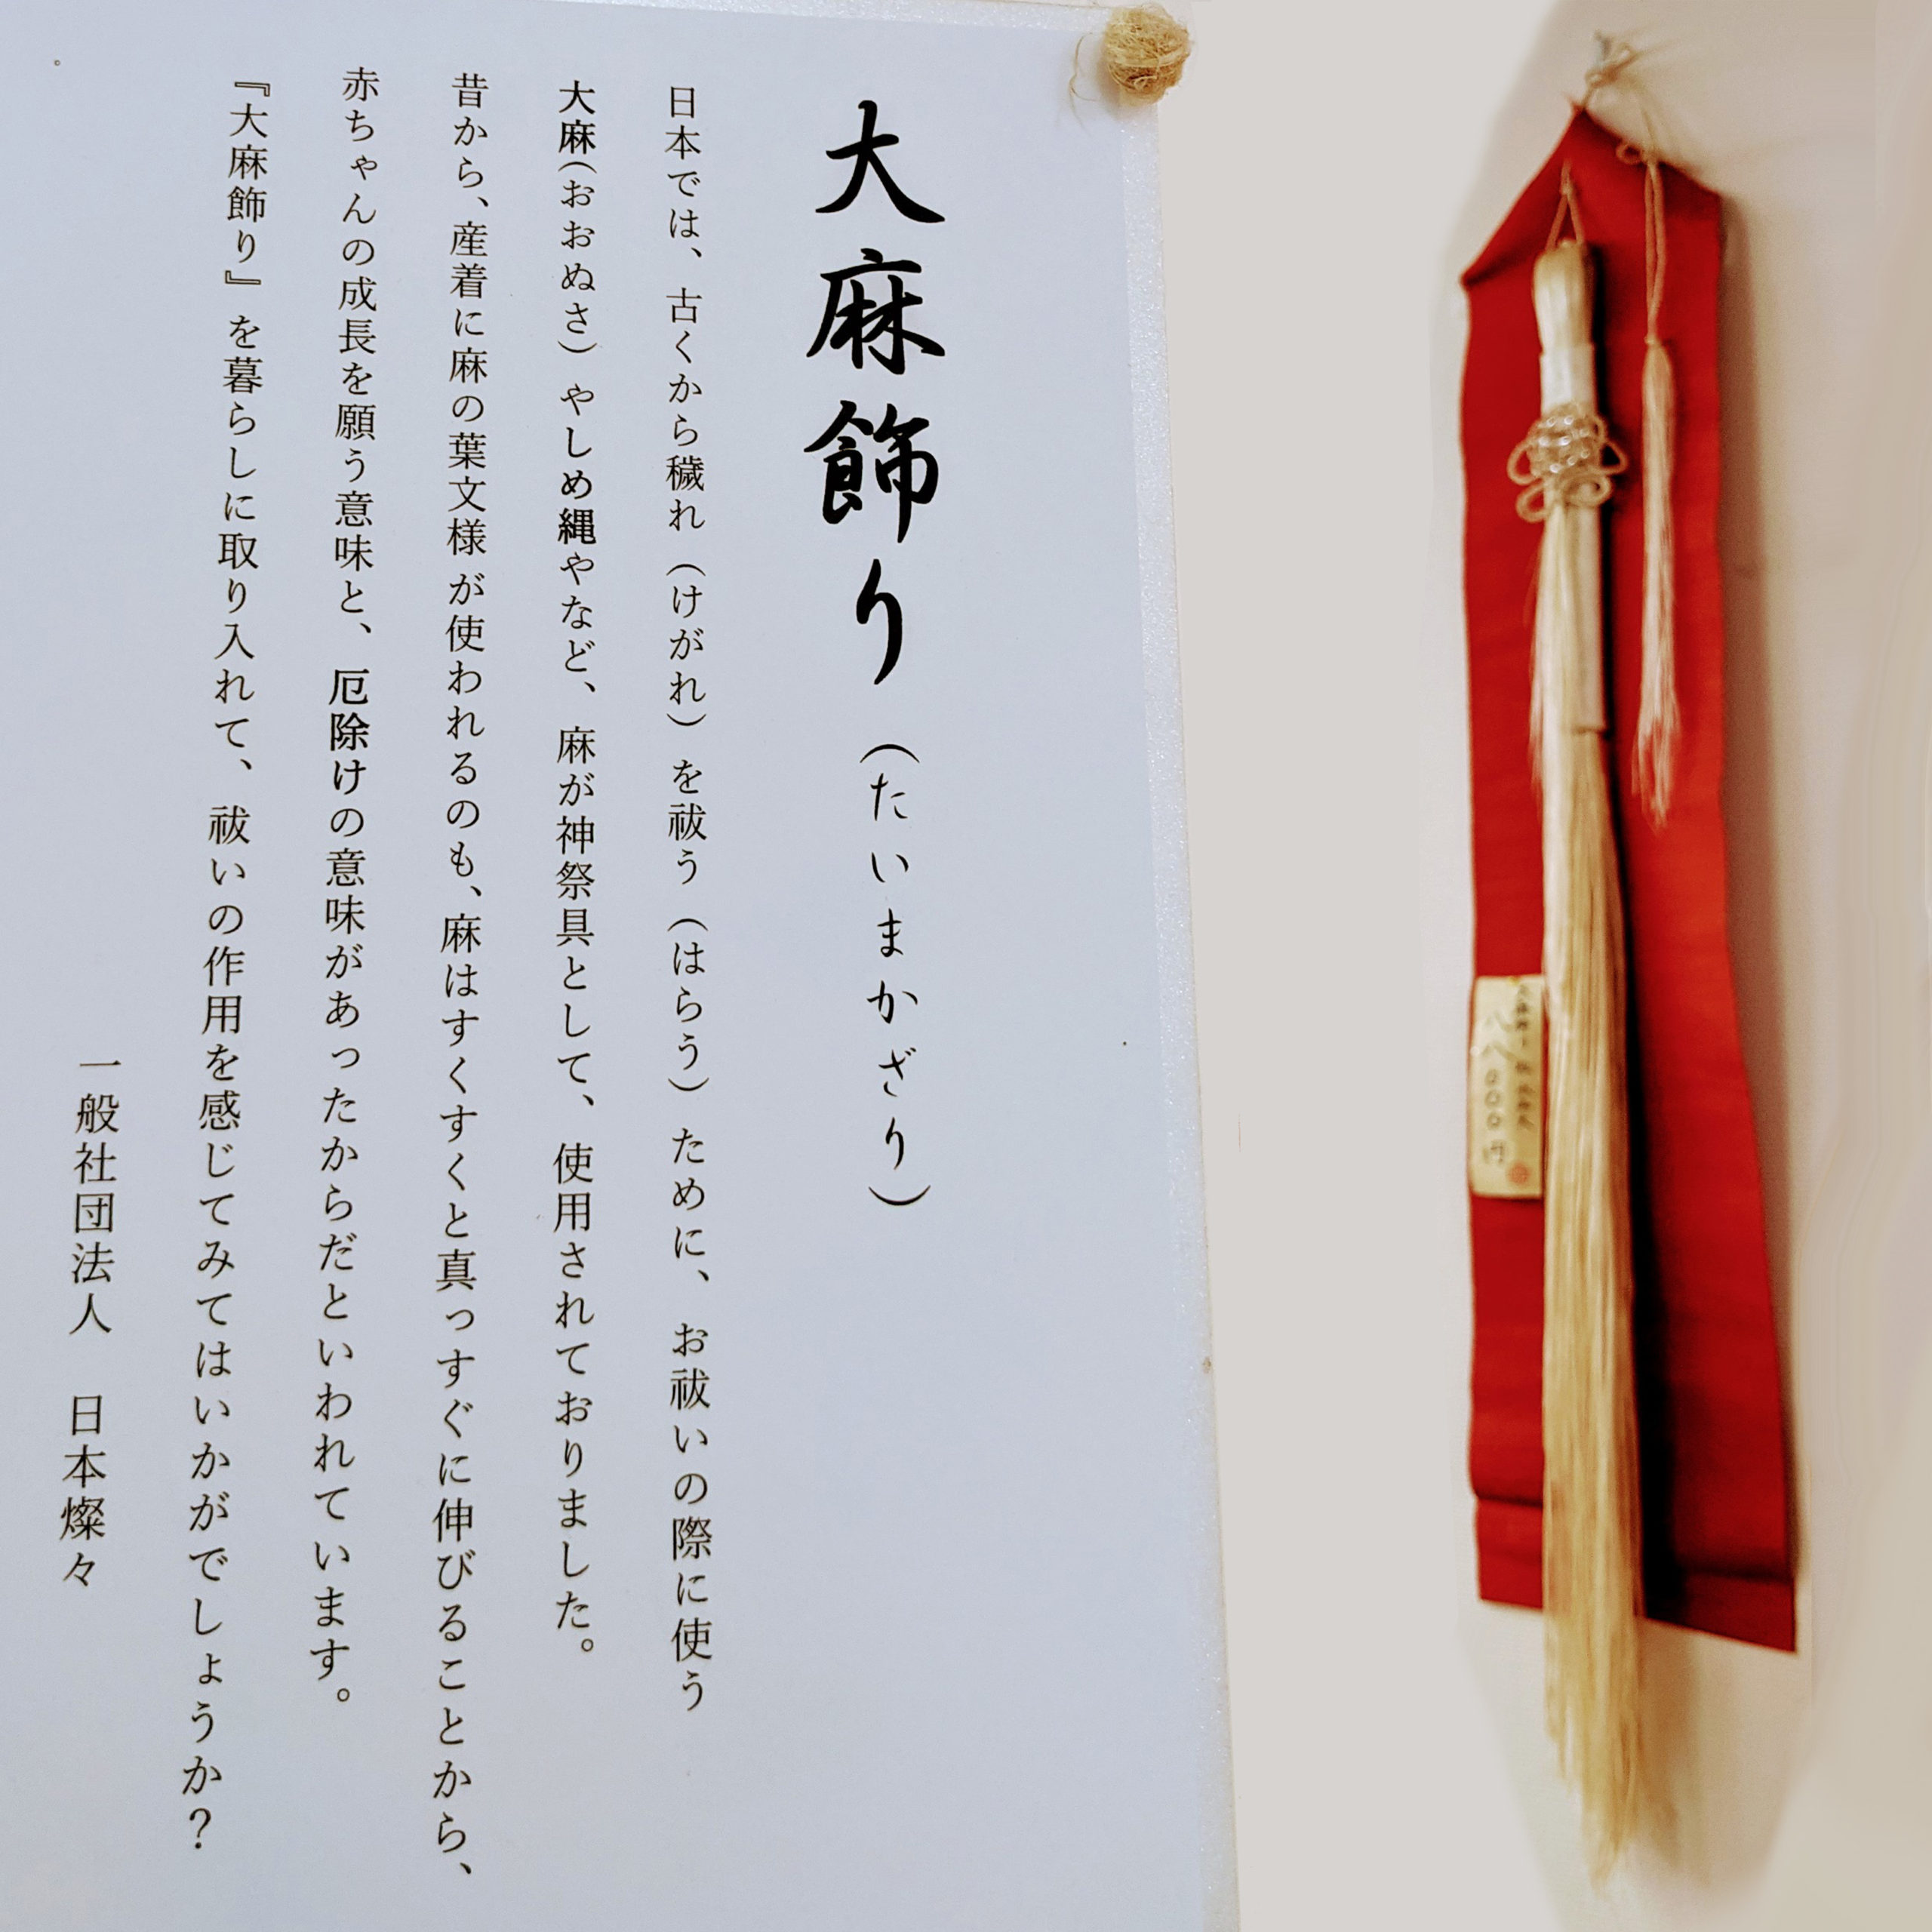 大麻飾り（たいまかざり）
日本では、古くから穢れ（けがれ）を祓う（はらう）ために、お祓いの際に使う
大麻（おおぬさ）やしめ縄やなど、麻が神祭具として、使用されておりました。
昔から、産着に麻の葉文様が使われるのも、麻はすくすくと真っすぐに伸びることから、
赤ちゃんの成長を願う意味と、厄除けの意味があったからだといわれています。
『大麻飾り』を暮らしに取り入れて、祓いの作用を感じてみてはいかがでしょうか？
一般社団法人　日本燦々
八八〇〇〇円